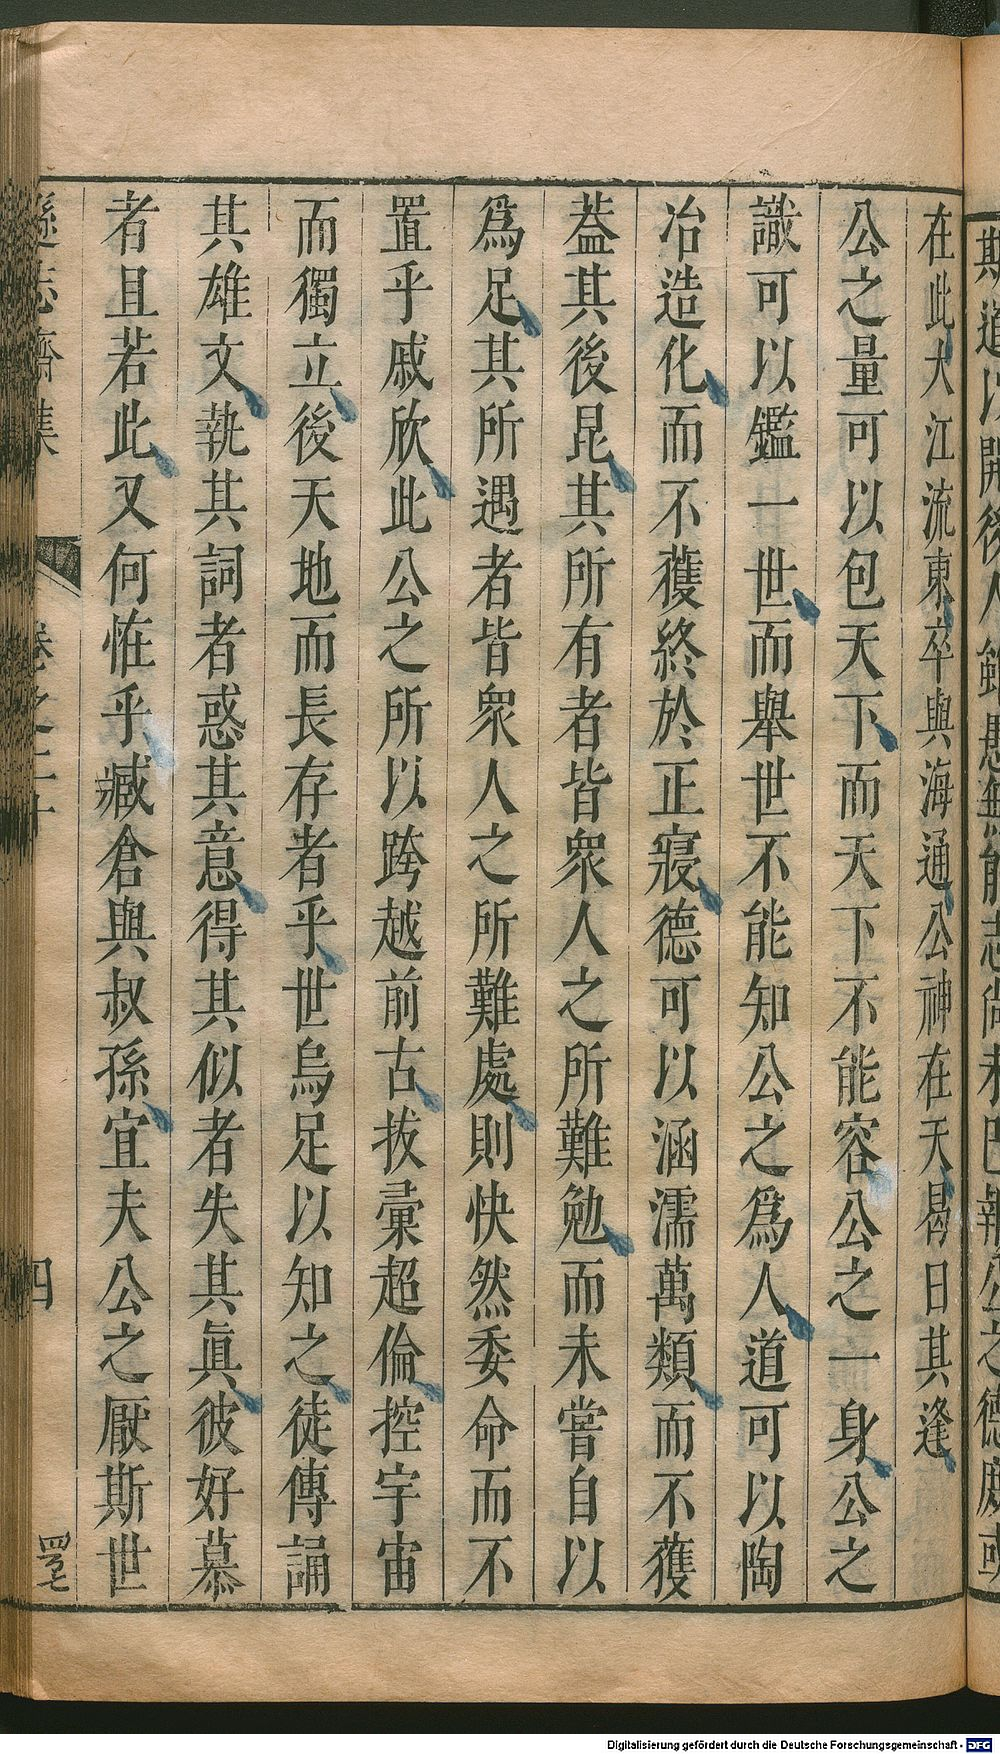 在此大江流東卒與海通公神在天曷日其逢
公之量可以包天下而天下不能容公之一身公之
識可以鑑一世而舉世不能知公之爲人道可以陶
冶造化而不獲終於正寢德可以涵濡萬類而不獲
蓋其後昆其所有者皆衆人之所難勉而未嘗自以
爲足其所遇者皆衆人之所難處則快然委命而不
置乎戚欣此公之所以跨越前古拔彙超倫控宇宙
而獨立後天地而長存者乎世烏足以知之徒傳誦
其雄文執其詞者惑其意得其似者失其眞彼好慕
者且若此又何恠乎臧倉與叔孫宜夫公之厭斯世
遜志齋集 卷之二十 四
Digitalisierung gefördert durch die Deutsche Forschungsgemeinschaft - DFG